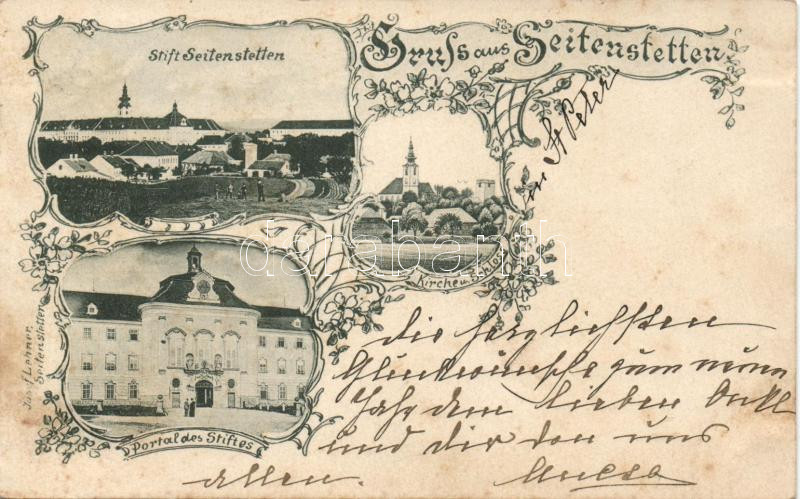 Gruss aus Seitenstetten
Stift Seitenstetten
in St Peter
Kirche u.
Portal des Stiftes
Jos. f Lehner.
Seitenstetten
darabanth
die herzlichsten
Glückwünsche zum neuen
Jahr dem lieben Onkl
und dir von uns
allen.